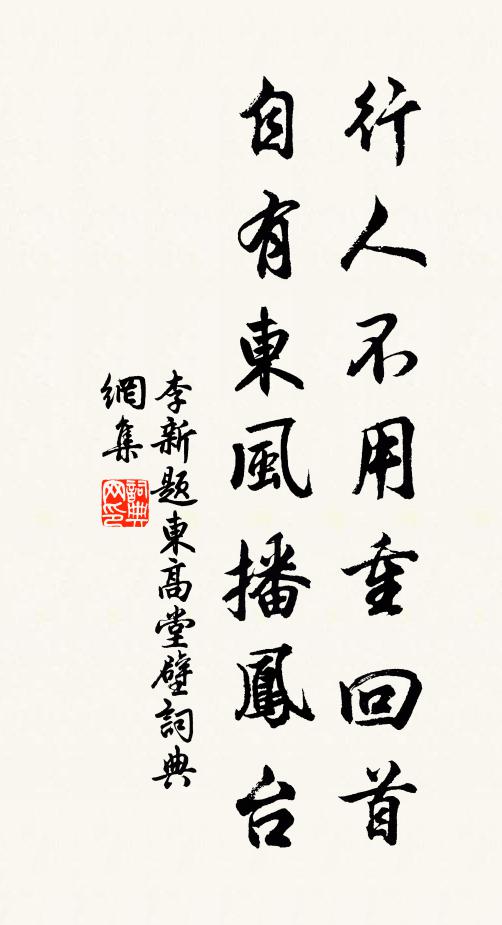 行人不用重回首
自有東風播鳳台
李新题東高堂壁詞典
網集
詞典
网印